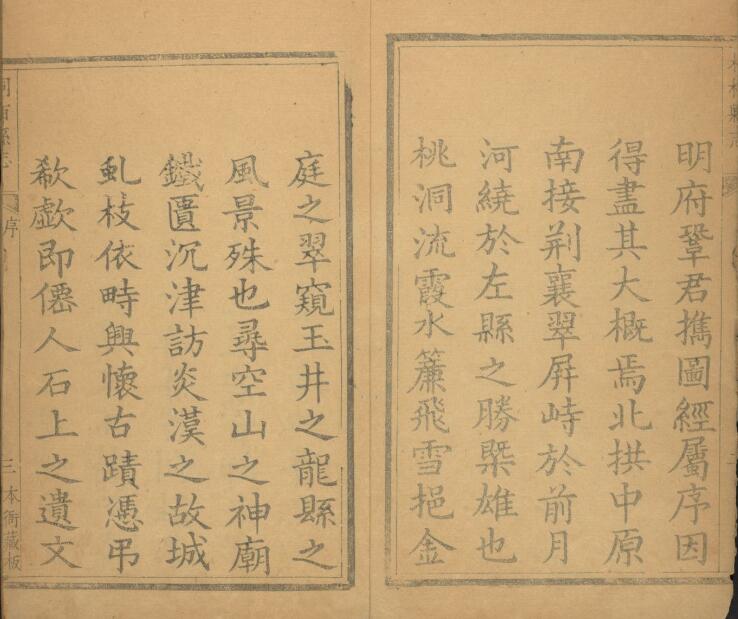 明府鞏君擕圖經屬序因
得盡其大概焉北拱中原
南接荆襄翠屛峙於前月
河繞於左縣之勝槩雄也
桃洞流霞水簾飛雪挹金
庭之翠窺玉井之龍縣之
風景殊也尋空山之神廟
鐵匱沉津訪炎漢之故城
虬枝依畤興懷古蹟憑弔
欷歔即僊人石上之遺文
桐柏縣志
序
三
本衙藏板